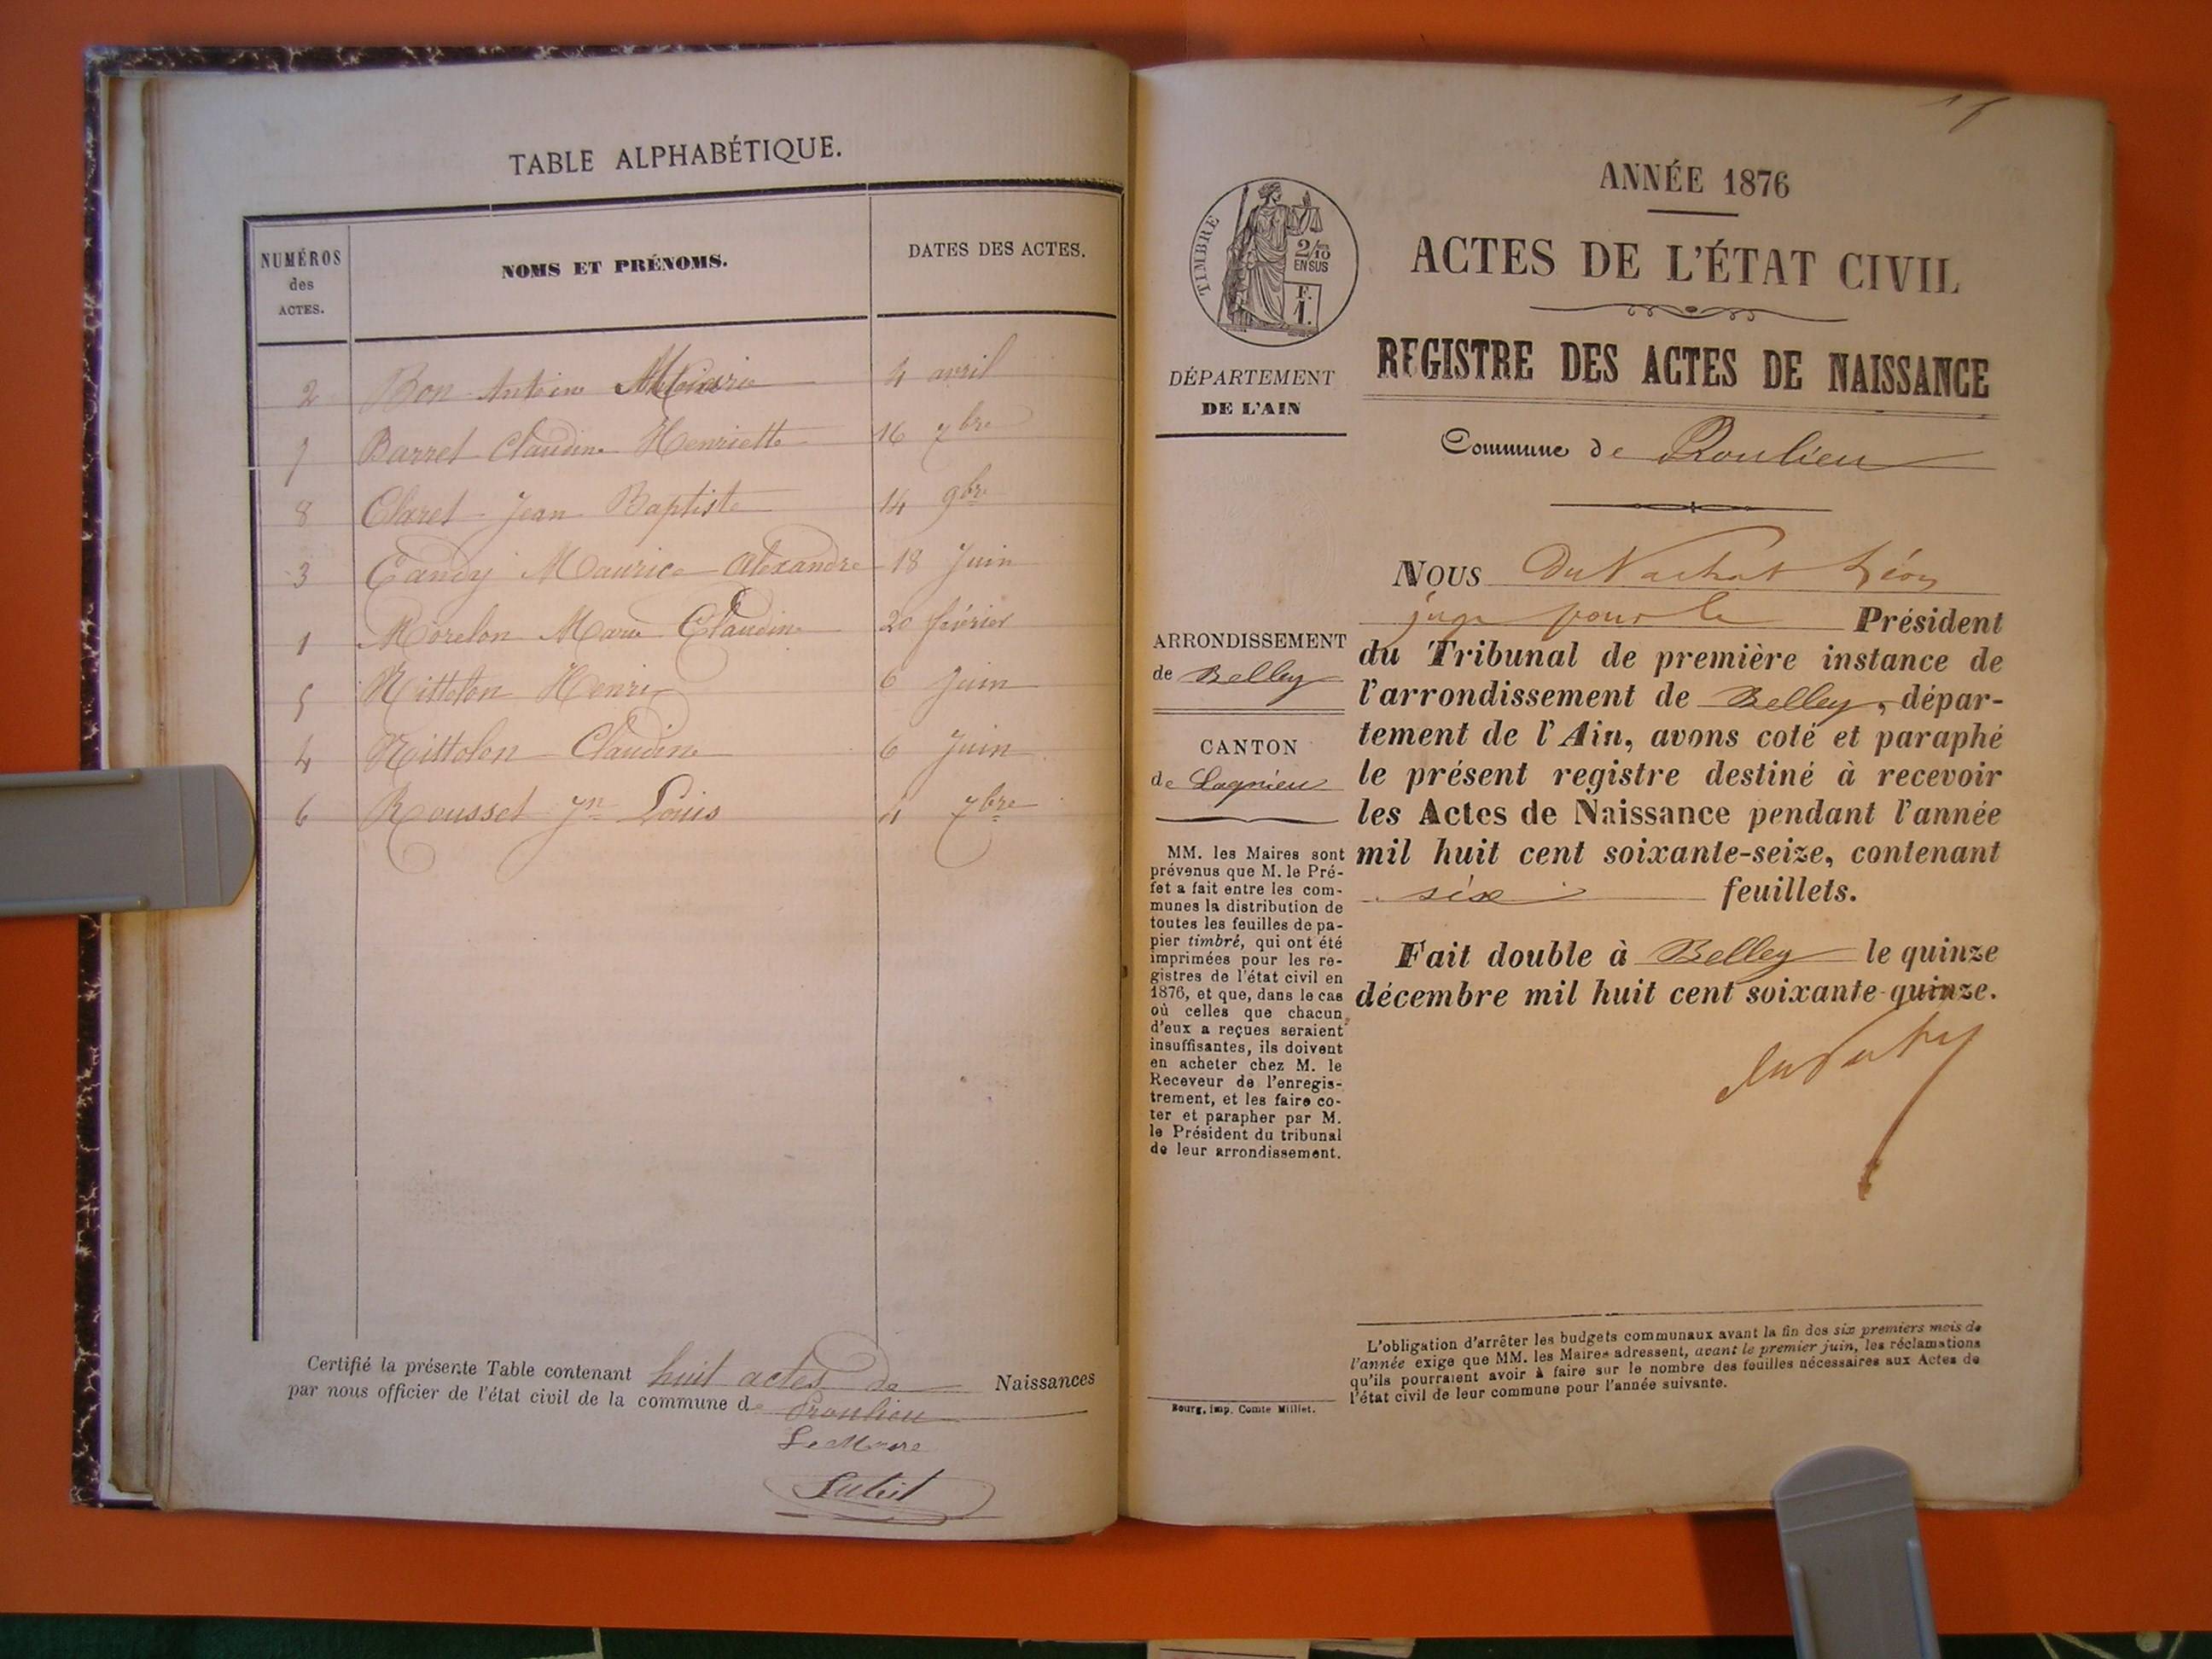 TABLE ALPHABÉTIQUE.
NUMÉROS
des
ACTES.
NOMS ET PRÉNOMS.
DATES DES ACTES.
2 Bon Antoine 4 avril
7 Barret Claudine Henriette 16 7bre
8 Claret Jean Baptiste 14 9bre
3 Candy Maurice Alexandre 18 Juin
1 Morelon Marie Claudine 20 février
5 Nittolon Henri 6 Juin
4 Nittolon Claudine 6 Juin
6 Rousset Jn Louis 4 7bre
Certifié la présente Table contenant huit actes de Naissances
par nous officier de l'état civil de la commune de Proulieu
Le Maire
ANNÉE 1876
TIMBRE
2/10
EN SUS
F.
1.
ACTES DE L'ÉTAT CIVIL
REGISTRE DES ACTES DE NAISSANCE
DÉPARTEMENT
DE L'AIN
Commune de Proulieu
ARRONDISSEMENT
de Belley
CANTON
de Lagnieu
MM. les Maires sont
prévenus que M. le Pré-
fet a fait entre les com-
munes la distribution de
toutes les feuilles de pa-
pier timbré, qui ont été
imprimées pour les re-
gistres de l'état civil en
1876, et que, dans le cas
où celles que chacun
d'eux a reçues seraient
insuffisantes, ils doivent
en acheter chez M. le
Receveur de l'enregis-
trement, et les faire co-
ter et parapher par M.
le Président du tribunal
de leur arrondissement.
Bourg, imp. Comte Milliet.
NOUS Du Vachat Léon
juge pour le Président
du Tribunal de première instance de
l'arrondissement de Belley, dépar-
tement de l'Ain, avons coté et paraphé
le présent registre destiné à recevoir
les Actes de Naissance pendant l'année
mil huit cent soixante-seize, contenant
six feuillets.
Fait double à Belley le quinze
décembre mil huit cent soixante-quinze.
L'obligation d'arrêter les budgets communaux avant la fin des six premiers mois de
l'année exige que MM. les Maires adressent, avant le premier juin, les réclamations
qu'ils pourraient avoir à faire sur le nombre des feuilles nécessaires aux Actes de
l'état civil de leur commune pour l'année suivante.